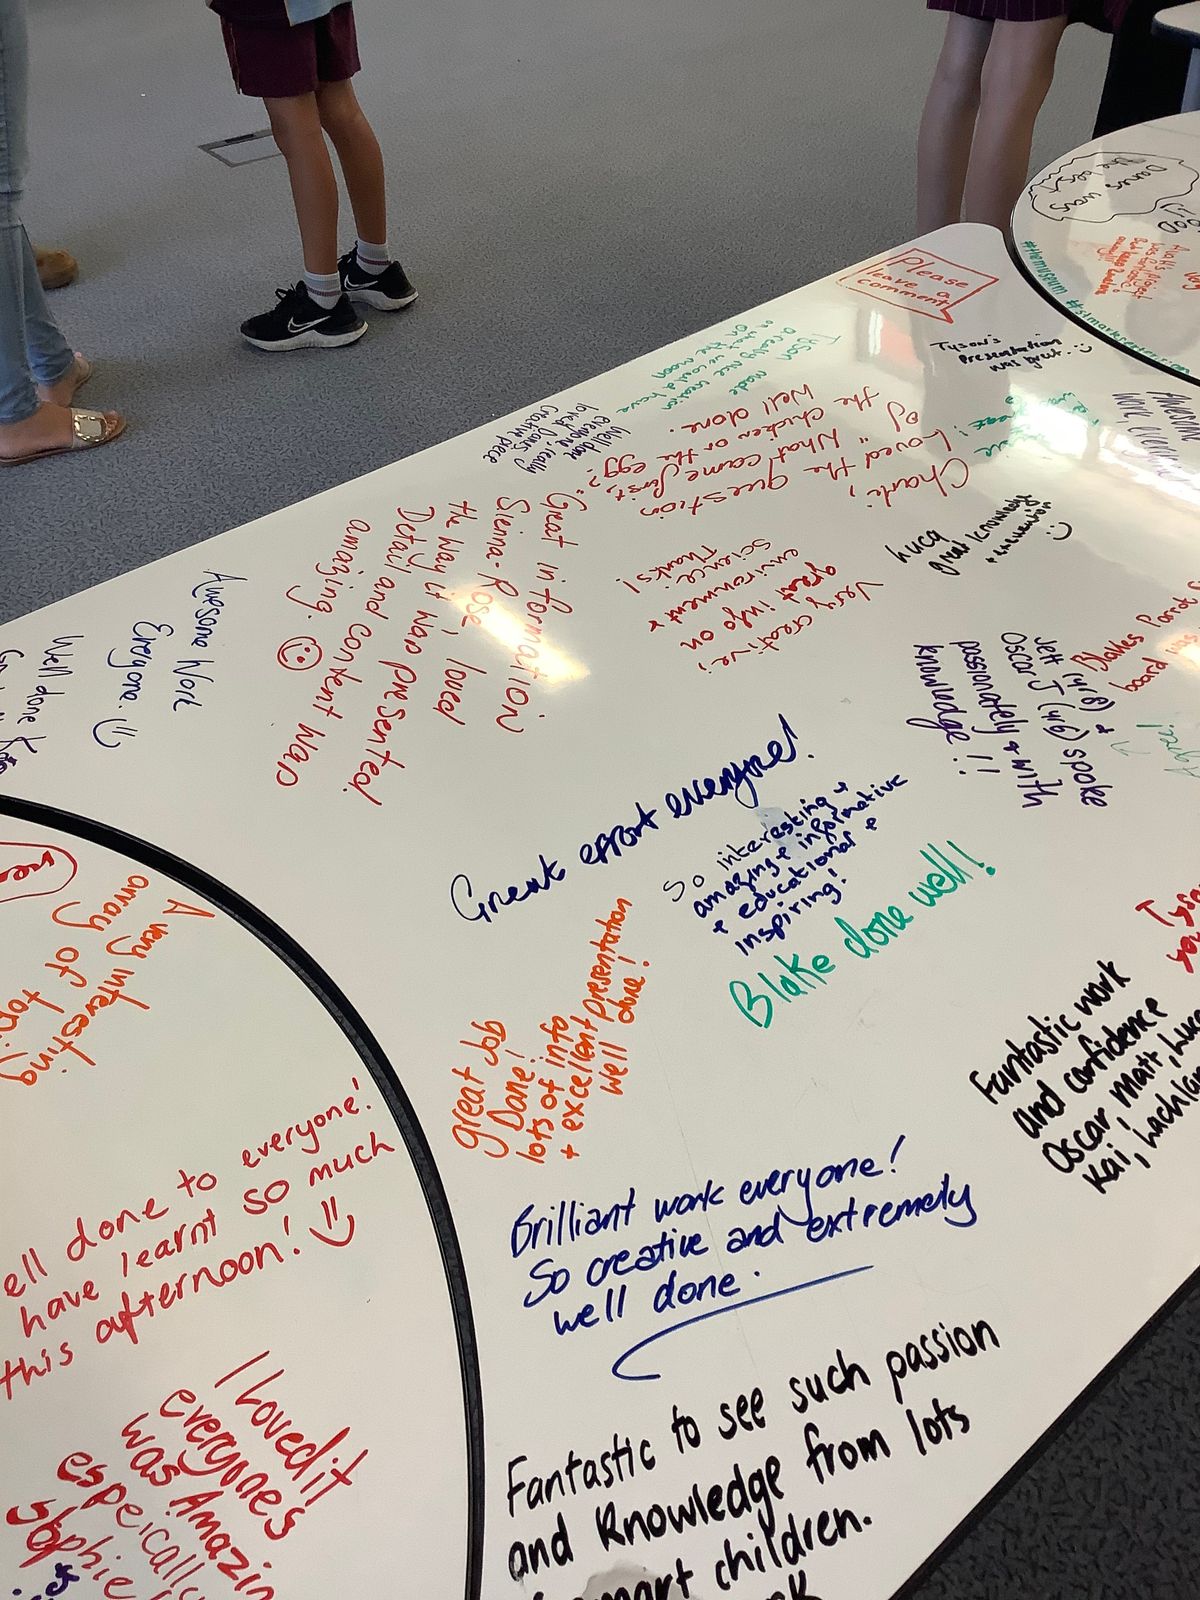 Please
leave a
comment
the best
Danes was
#themuseum
Tyson's
Presentation
was great.
Tyson
made
a really nice creation
on the moon
Well done
everyone, really
loved Danes
creative piece
Charli,
Loved the question
"What came first,
the chicken or the egg?"
Well done.
Awesome
work everyone
Luca
great knowledge
Very creative,
great info on
environment &
science
Thanks!
Great information
Sienna-Rose, loved
the way it was presented.
Detail and content was
amazing.
Awesome Work
Everyone.
Well done
Blakes
board was
Jett (yr6) &
Oscar J (yr6) spoke
passionately & with
knowledge!!
Agree!
Great effort everyone!
So interesting +
amazing + informative
+ educational +
inspiring!
Blake done well!
great job
Dane!
lots of info
+ excellent presentation
well done!
Fantastic work
and confidence
Oscar, Matt,
Kai,
A very interesting
array of
ell done to everyone!
have learnt so much
this afternoon!
Brilliant work everyone!
So creative and extremely
well done.
I Loved it
everyones
was Amazin
espeically
Fantastic to see such passion
and Knowledge from lots
children.